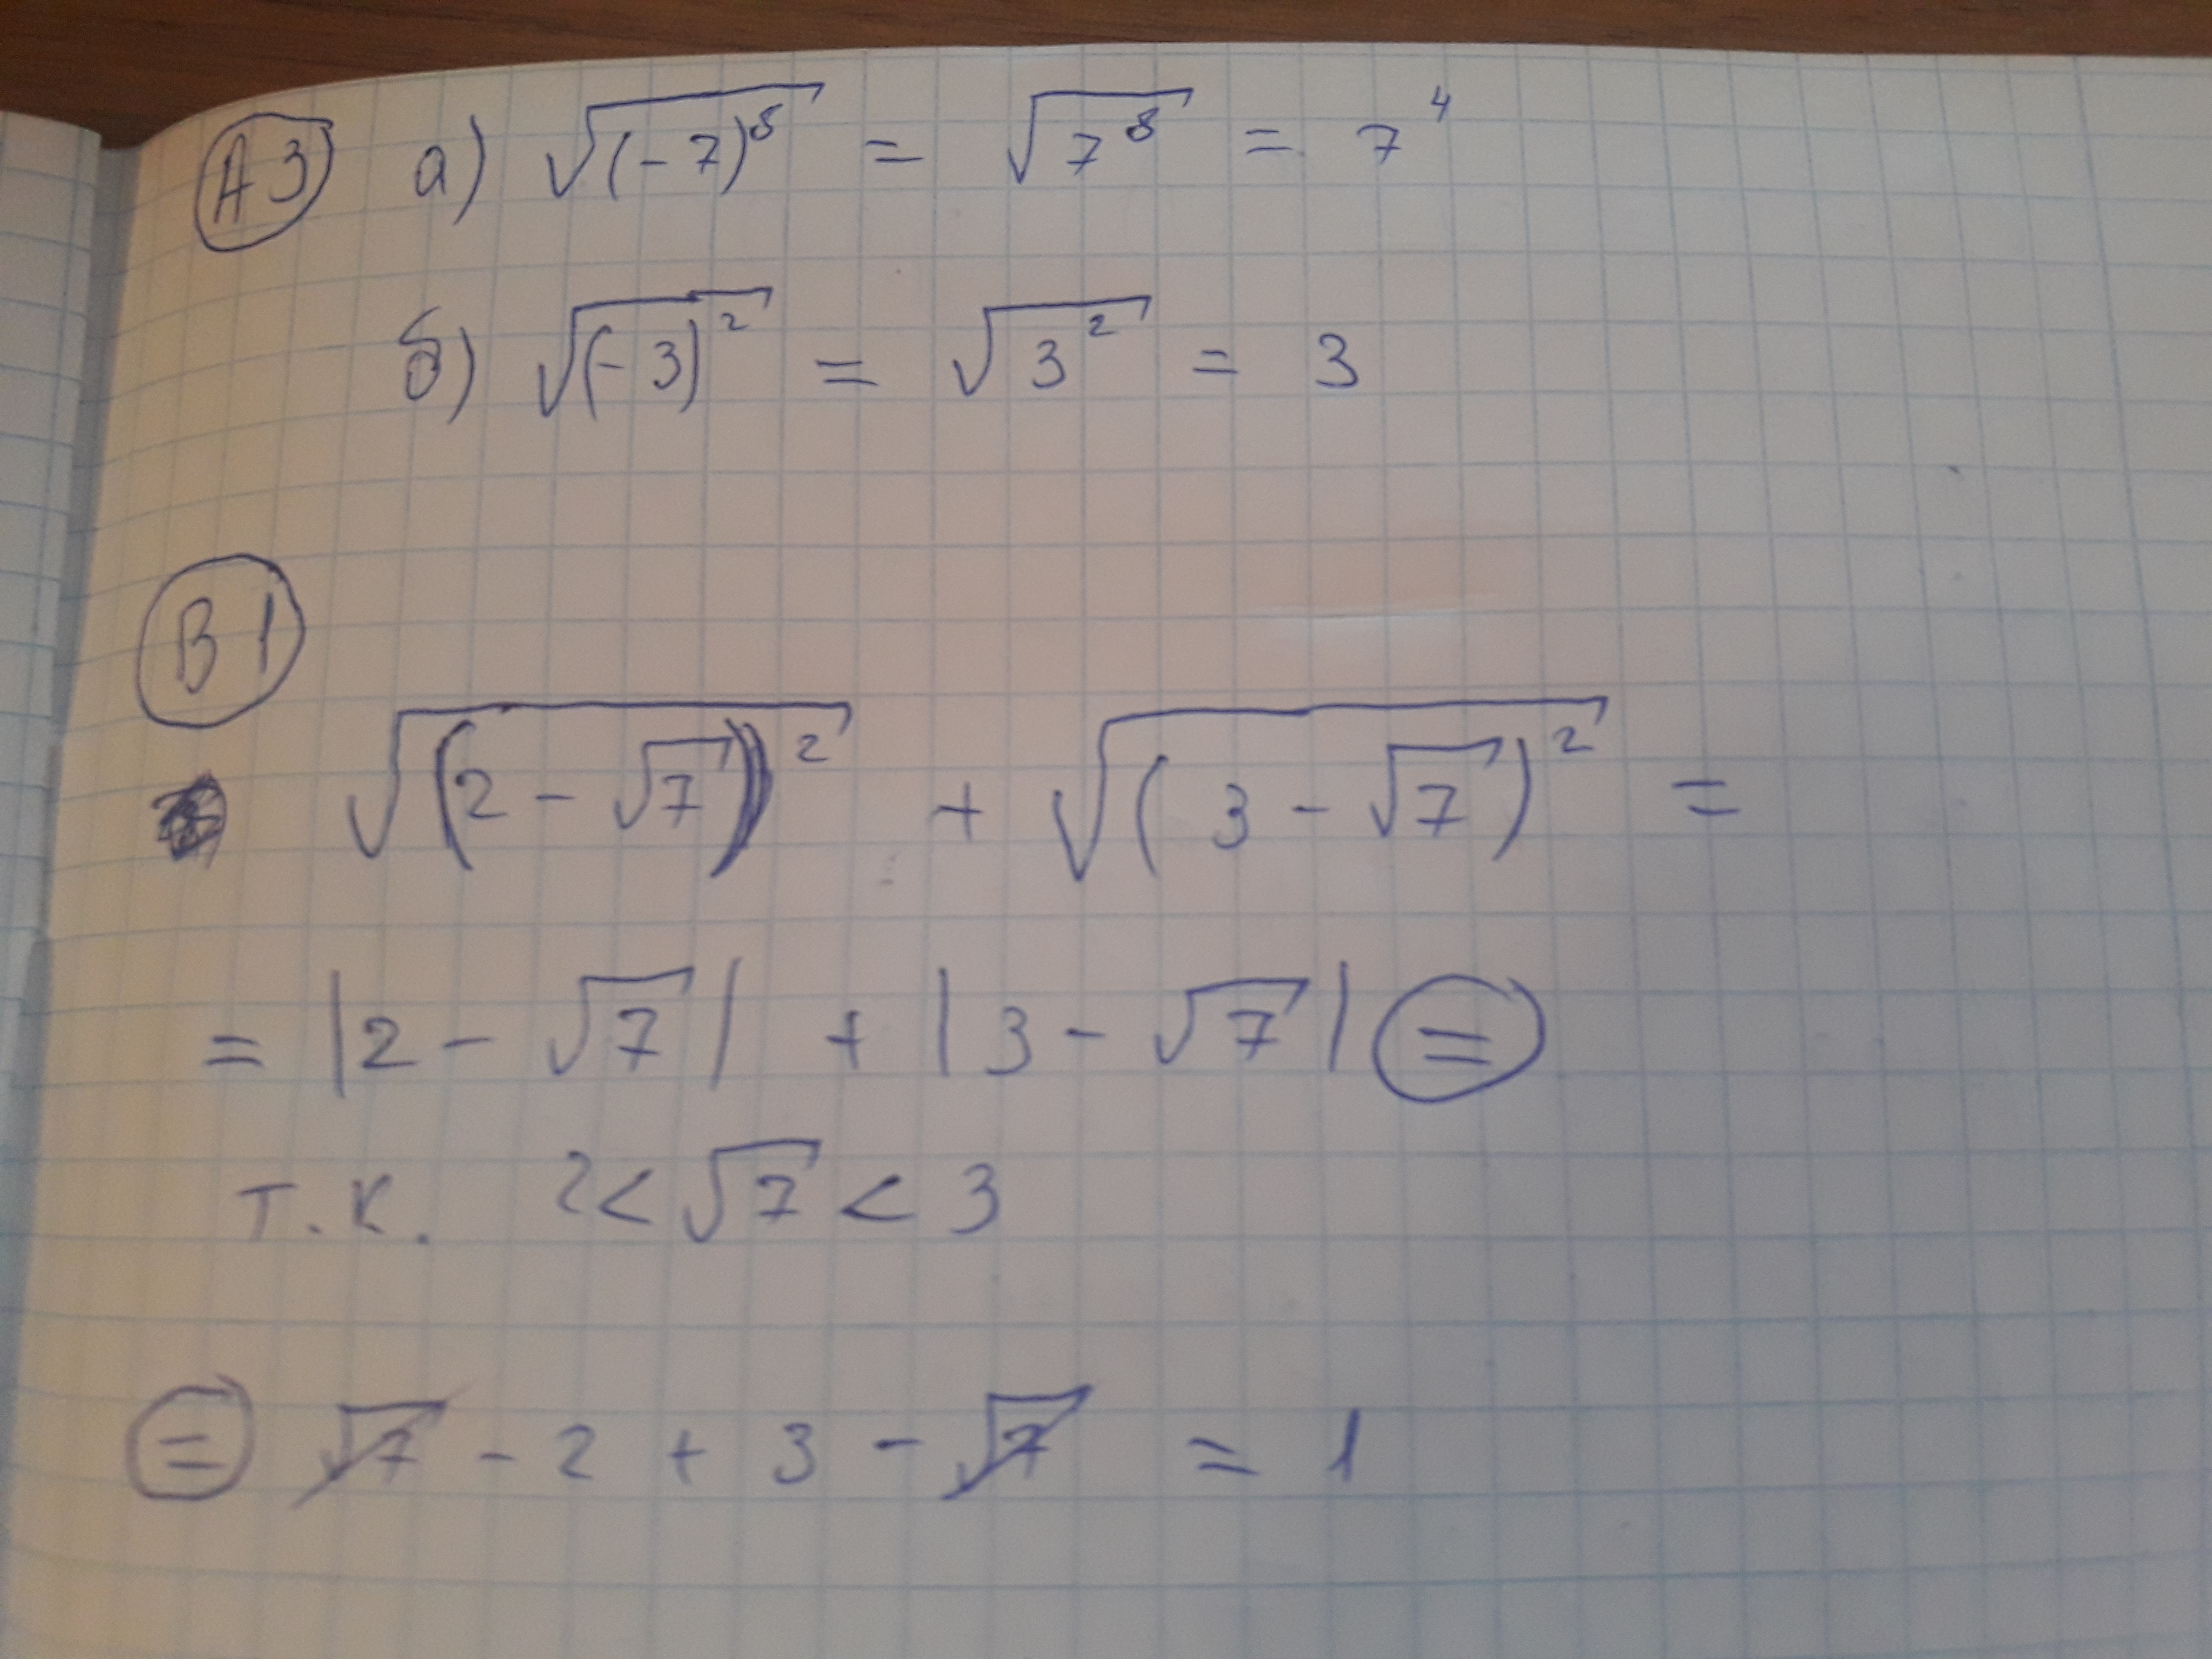 А3 а) √(-7)⁸ = √7⁸ = 7⁴
б) √(-3)² = √3² = 3
В1
√(2-√7)² + √(3-√7)² =
= |2-√7| + |3-√7| =
т.к. 2<√7<3
= √7 - 2 + 3 - √7 = 1